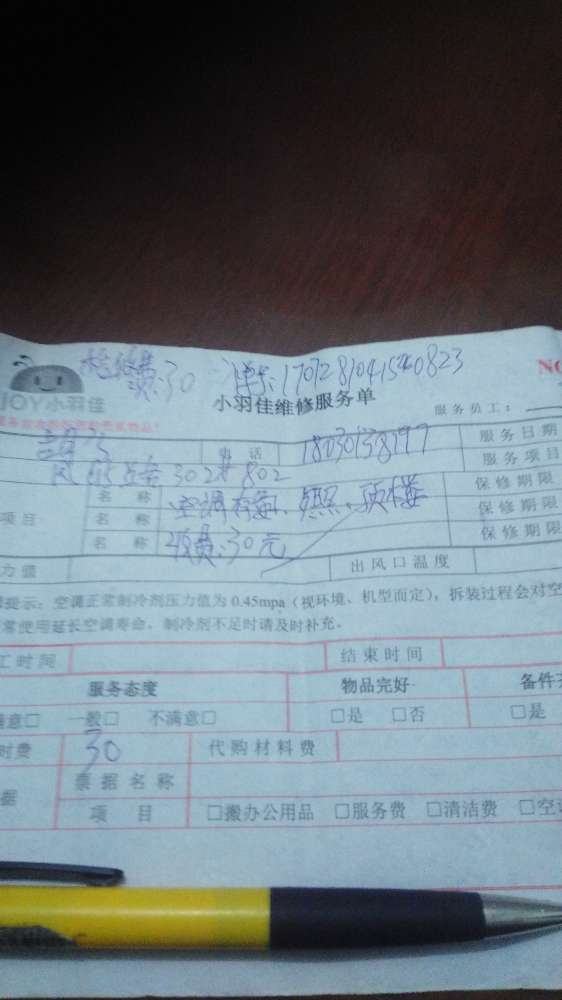 检修费:30 单号:1701281041540823
NO
JOY小羽佳 小羽佳维修服务单 服务员工:
电 话 18030138197 服务日期
302# 802 服务项目
名 称 空调 保修期限
项目 名 称 保修期限
名 称 收费:30元 保修期限
力值 出风口温度
提示:空调正常制冷剂压力值为 0.45mpa(视环境、机型而定),拆装过程会对空
常使用延长空调寿命。制冷剂不足时请及时补充。
工时间 结束时间
服务态度 物品完好 备件
满意□ 一般□ 不满意□ □是 □否 □是
时费 30 代购材料费
据 票据名称
项 目 □搬办公用品 □服务费 □清洁费 □空